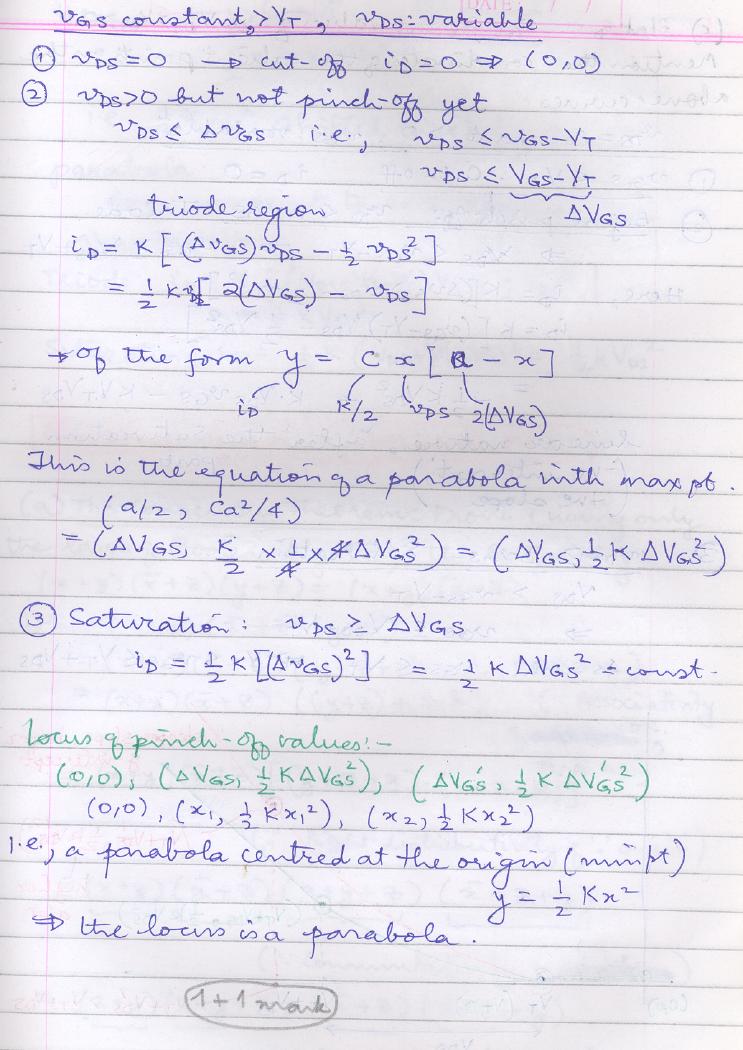 vGS constant, > VT , vDS: variable
① vDS = 0 → cut-off iD = 0 ⇒ (0,0)
② vDS > 0 but not pinch-off yet
vDS ≤ ΔvGS i.e., vDS ≤ vGS - VT
vDS ≤ VGS - VT
ΔVGS
triode region
iD = K [ (ΔvGS) vDS - 1/2 vDS² ]
= 1/2 K [ 2(ΔVGS) - vDS ]
→ Of the form y = C x [ a - x ]
iD K/2 vDS 2(ΔVGS)
This is the equation of a parabola with max pt.
(a/2, Ca²/4)
= (ΔVGS, K/2 × 1/4 × 4ΔVGS²) = (ΔVGS, 1/2 K ΔVGS²)
③ Saturation: vDS ≥ ΔVGS
iD = 1/2 K [(ΔvGS)²] = 1/2 K ΔVGS² = const.
Locus of pinch-off values:-
(0,0), (ΔVGS, 1/2 K ΔVGS²), (ΔVGS', 1/2 K ΔVGS'²)
(0,0), (x1, 1/2 K x1²), (x2, 1/2 K x2²)
i.e., a parabola centred at the origin (min pt)
y = 1/2 K x²
⇒ the locus is a parabola.
1+1 mark